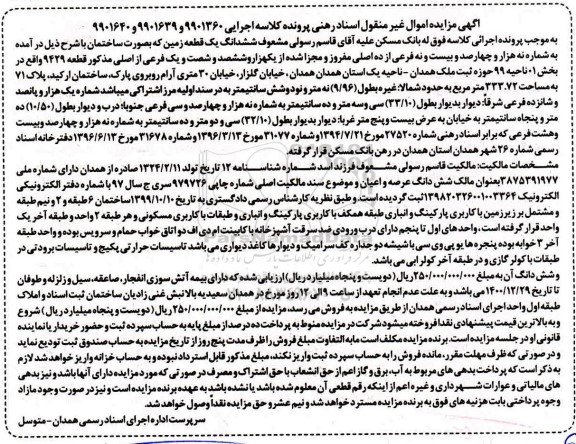 آگهی مزایده اموال غیر منقول اسناد رهنی پرونده کلاسه اجرایی ۹۹۰۱۳۶۰ و ۹۹۰۱۶۳۹ و ۹۹۰۱۶۴۰
به موجب پرونده اجرائی کلاسه فوق له بانک مسکن علیه آقای قاسم رسولی مشعوف ششدانگ یک قطعه زمین که بصورت ساختمان با شرح ذیل در آمده
به شماره نه هزار و چهارصد و بیست و نه فرعی از ده اصلی مفروز و مجزا شده از یکهزار و ششصد و شصت و یک فرعی از اصلی مذکور قطعه ۹۴۲۹ واقع در
بخش ۱ ناحیه ۹۹ حوزه ثبت ملک همدان - ناحیه یک استان همدان همدان، خیابان گلزار، خیابان ۳۰ متری آرام روبروی پارک، ساختمان ارکید، پلاک ۷۱
به مساحت ۳۳۳.۷۲ متر مربع به حدود شمالا: غیره بطول (۹/۹۶) نه متر و نود و شش سانتیمتر به در سند اولیه مرز اشتراکی میباشد شماره یک هزار و پانصد
و شانزده فرعی شرقاً: دیوار بدیوار بطول (۳۳/۱۰) سی و سه متر و ده سانتیمتر به شماره نه هزار و چهارصد و سی فرعی جنوبا: درب و دیوار بطول (۱۰/۵۰) ده
متر و پنجاه سانتیمتر به خیابان به عرض بیست و پنج متر غربا: دیوار بدیوار بطول (۳۲/۱۰) سی و دو متر و ده سانتیمتر به شماره نه هزار و چهارصد وبیست
وهشت فرعی که برابر اسناد رهنی شماره ۲۷۵۲۰ مورخ ۱۳۹۴/۷/۲۱ و شماره ۳۱۰۷۷ مورخ ۱۳۹۶/۳/۱۳ و شماره ۳۱۶۷۸ مورخ ۱۳۹۶/۶/۱۳ دفترخانه اسناد
رسمی شماره ۲۶ شهر همدان استان همدان در رهن بانک مسکن قرار گرفته
مشخصات مالکیت: مالکیت قاسم رسولی مشعوف فرزند اسد شماره شناسنامه ۱۲ تاریخ تولد ۱۳۲۴/۲/۱۱ صادره از همدان دارای شماره ملی
۳۸۷۵۳۹۱۹۷۷ بعنوان مالک شش دانگ عرصه و اعیان و موضوع سند مالکیت اصلی شماره چاپی ۹۷۹۷۲۶ سری ج سال ۹۷ با شماره دفتر الکترونیکی
الکترونیک ۱۳۹۸۲۰۳۲۶۰۰۱۰۰۳۳۶۴ ثبت گردیده است. و طبق نظریه کارشناس رسمی دادگستری به تاریخ ۱۳۹۹/۱۰/۱۰ ساختمان ۶ طبقه و ۲ نیم طبقه
و مشتمل بر زیرزمین با کاربری پارکینگ و انباری طبقه همکف با کاربری پارکینگ و انباری و طبقات با کاربری مسکونی و هر طبقه ۲ واحد و طبقه آخر یک
واحد قرار گرفته است، واحد های اول تا پنجم دارای درب ورودی ضد سرقت آشپزخانه با کابینت ام دی اف دو اتاق خواب حمام و سرویس بوده و واحد طبقه
آخر ۳ خوابه بوده پنجره ها یو پی وی سی با شیشه دو جداره کف سرامیک و دیوارها کاغذ دیواری می باشد تاسیسات حرارتی پکیج و تاسیسات برودتی در
طبقات با کولر گازی و در طبقه آخر کولر آبی می باشد
و شش دانگ آن به مبلغ ۲۵۰/۰۰۰/۰۰۰/۰۰۰ ریال (دویست و پنجاه میلیارد ریال) ارزیابی شده که دارای بیمه آتش سوزی انفجار، صاعقه، سیل و زلزله و طوفان
تا تاریخ ۱۴۰۰/۱۲/۲۹ می باشد و به علت عدم انجام تعهد از ساعت ۹ الی ۱۲ روز مورخ در همدان سعیدیه بالا نبش غنی زادیان ساختمان ثبت اسناد و املاک
طبقه اول واحد اجرای اسناد رسمی همدان از طریق مزایده به فروش می رسد، مزایده از مبلغ ۲۵۰/۰۰۰/۰۰۰/۰۰۰ ریال (دویست و پنجاه میلیارد ریال) شروع
و به بالاترین قیمت پیشنهادی نقدا فروخته میشود شرکت در مزایده منوط به پرداخت ده درصد از مبلغ پایه به حساب سپرده ثبت و حضور خریدار یا نماینده
قانونی او در جلسه مزایده است. برنده مزایده مکلف است مابه التفاوت مبلغ فروش را ظرف مدت پنج روز از تاریخ مزایده به حساب صندوق ثبت تودیع نماید
و در صورتی که ظرف مهلت مقرر، مانده فروش را به حساب سپرده ثبت واریز نکند، مبلغ مذکور قابل استرداد نبوده و به حساب خزانه واریز خواهد شد لازم
به ذکر است که پرداخت بدهی های مربوط به آب، برق و گاز اعم از حق انشعاب یا حق اشتراک و مصرف در صورتی که مورد مزایده دارای آنها باشد و نیز بدهی
های مالیاتی و عوارات شهرداری و غیره اعم از اینکه رقم قطعی آن معلوم شده باشد یا نشده باشد به عهده برنده مزایده است و نیز در صورت وجود مازاد
وجوه پرداختی بابت هزینه های فوق به برنده مزایده مسترد خواهد شد و نیم عشر و حق مزایده نقداً وصول خواهد شد.
سرپرست اداره اجرای اسناد رسمی همدان - متوسل